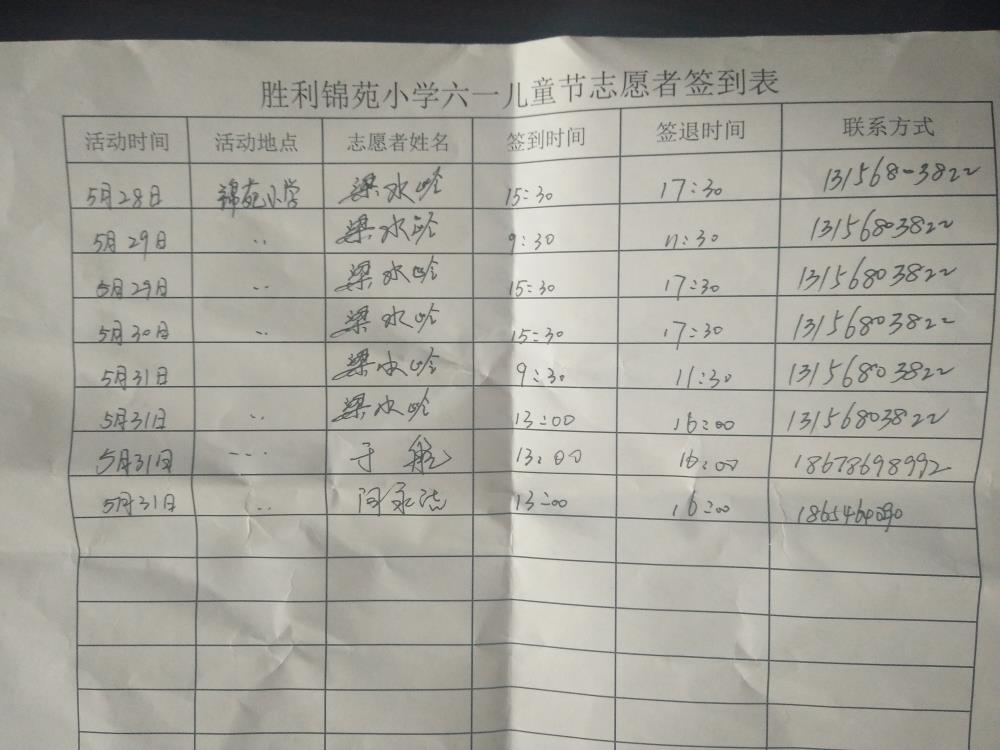 胜利锦苑小学六一儿童节志愿者签到表
活动时间 活动地点 志愿者姓名 签到时间 签退时间 联系方式
5月28日 锦苑小学 梁水岭 15:30 17:30 131568-3822
5月29日 〃 梁水岭 9:30 11:30 13156803822
5月29日 〃 梁水岭 15:30 17:30 13156803822
5月30日 〃 梁水岭 15:30 17:30 13156803822
5月31日 梁水岭 9:30 11:30 13156803822
5月31日 〃 梁水岭 13:00 16:00 13156803822
5月31日 --- 于航 13:00 16:00 18678698992
5月31日 〃 13:00 16:00